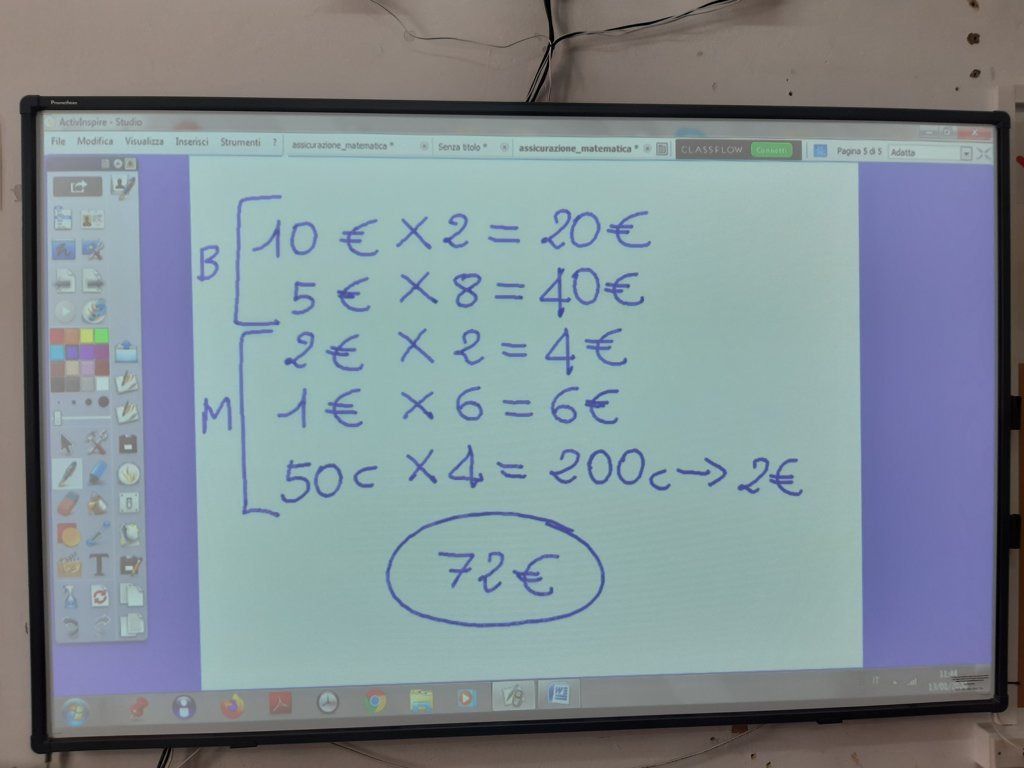 Promethean
ActivInspire - Studio
File Modifica Visualizza Inserisci Strumenti ?
assicurazione_matematica * Senza titolo * assicurazione_matematica * CLASSFLOW Connetti Pagina 5 di 5 Adatta
B
10 € × 2 = 20 €
5 € × 8 = 40 €
M
2 € × 2 = 4 €
1 € × 6 = 6 €
50 c × 4 = 200 c → 2 €
72 €
T
IT